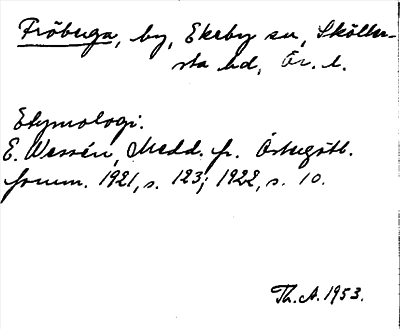 Fröbuga, by, Ekeby sn, Sköller-
sta hd, Ör. l.
Etymologi.
E. Wessén, Medd. fr. Östergötl.
fornm. 1921, s. 123; 1922, s. 10.
Th. A. 1953.